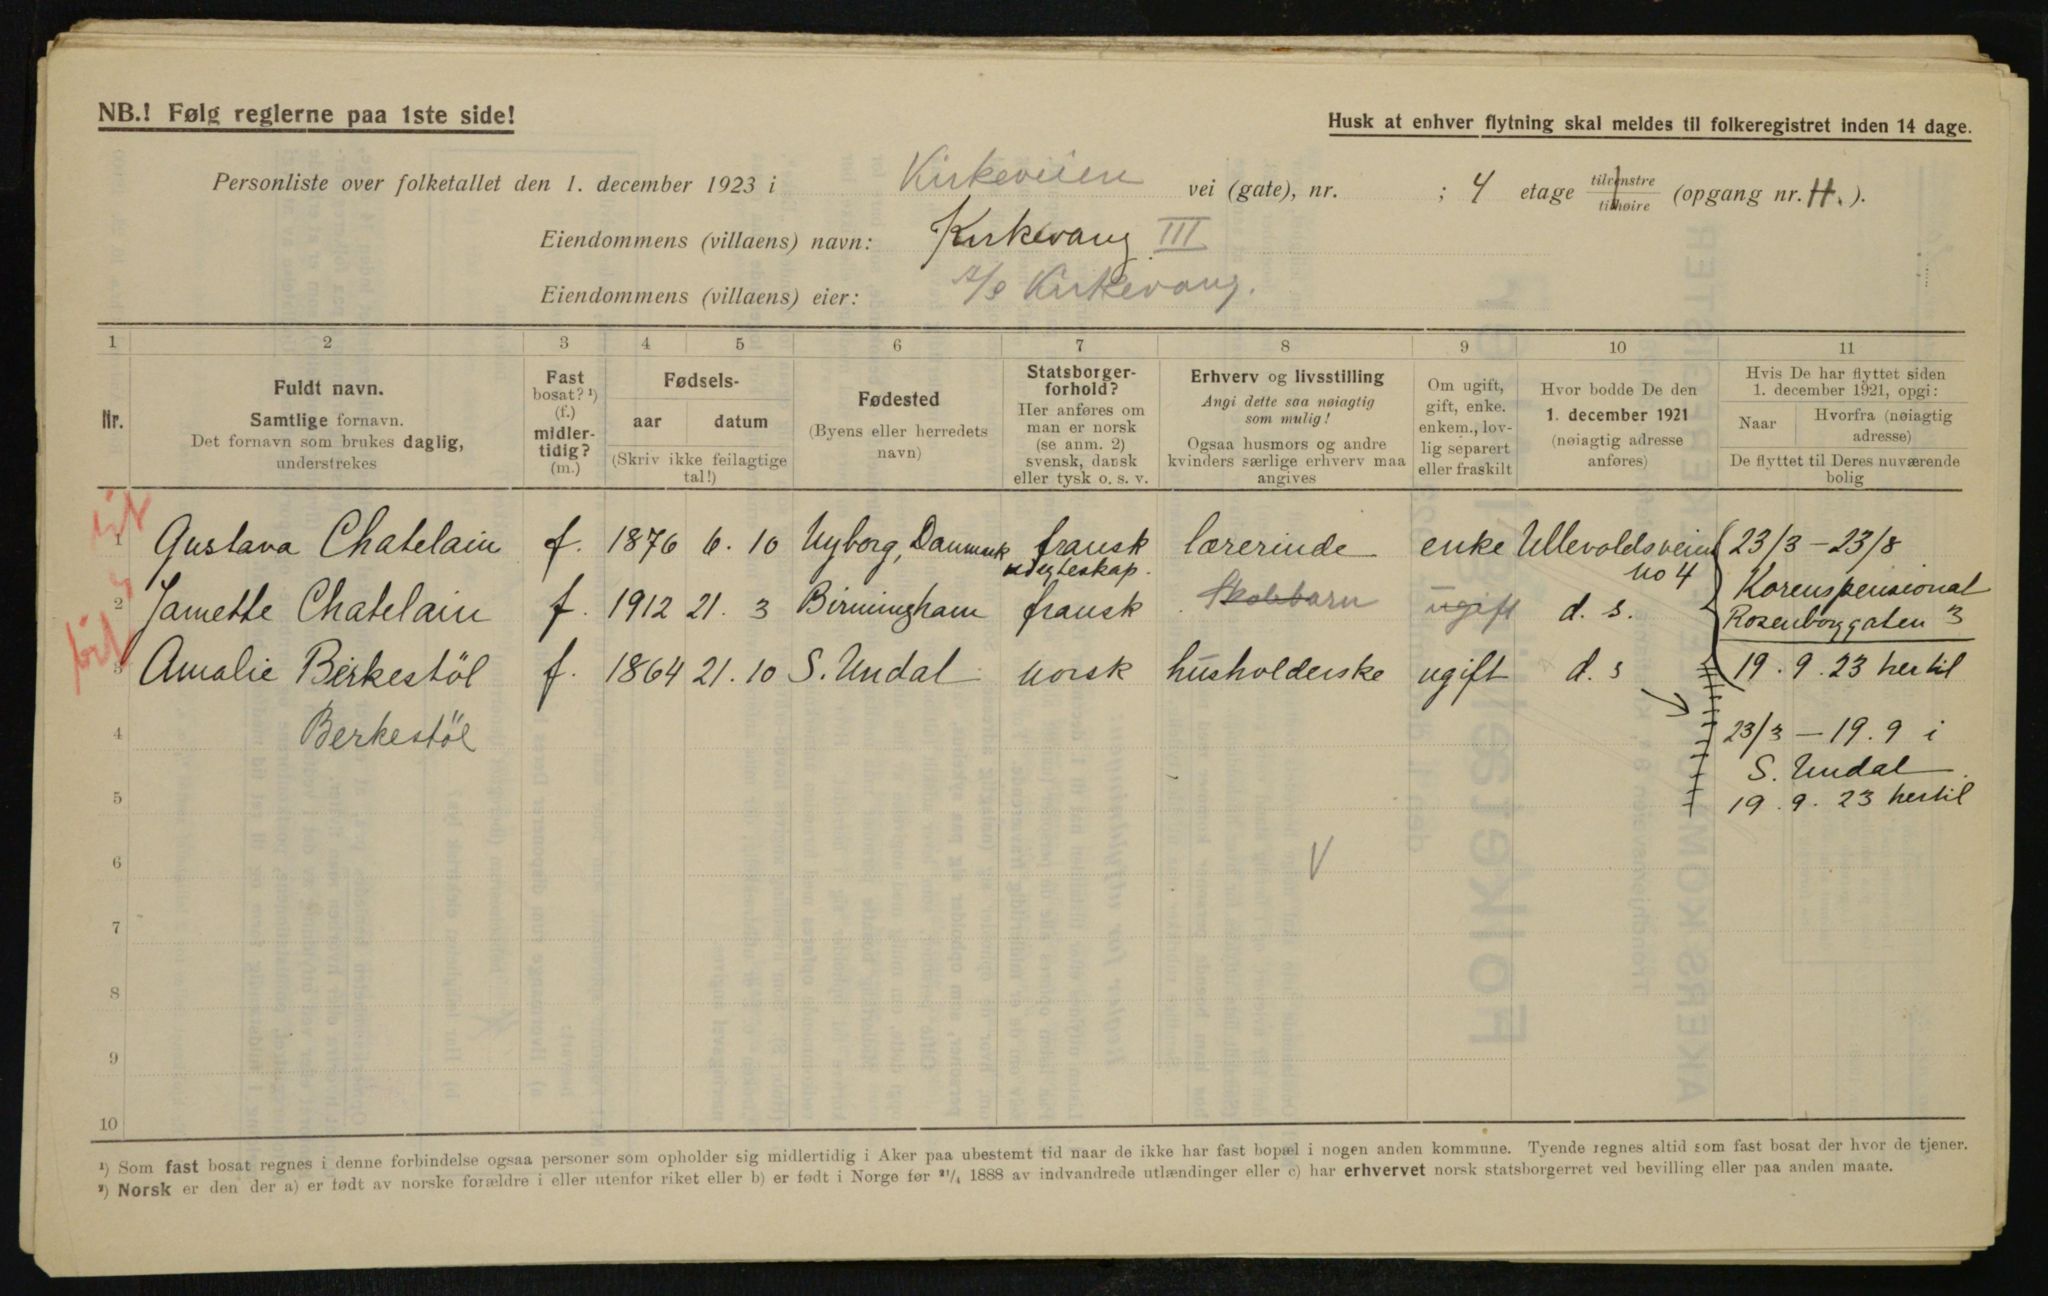 NB.! Følg reglerne paa 1ste side!
Husk at enhver flytning skal meldes til folkeregistret inden 14 dage.
Personliste over folketallet den 1. december 1923 i Kirkeveien vei (gate), nr. ; 4 etage tilvenstre tilhøire (opgang nr. H.).
Eiendommens (villaens) navn: Kirkevang III
Eiendommens (villaens) eier: A/S Kirkevang.
1 2 3 4 5 6 7 8 9 10 11
Nr.
Fuldt navn.
Samtlige fornavn.
Det fornavn som brukes daglig,
understrekes
Fast
bosat? ¹)
(f.)
midler-
tidig?
(m.)
Fødsels-
aar datum
(Skriv ikke feilagtige
tal!)
Fødested
(Byens eller herredets
navn)
Statsborger-
forhold?
Her anføres om
man er norsk
(se anm. 2)
svensk, dansk
eller tysk o. s. v.
Erhverv og livsstilling
Angi dette saa nøiagtig
som mulig!
Ogsaa husmors og andre
kvinders særlige erhverv maa
angives
Om ugift,
gift, enke.
enkem., lov-
lig separert
eller fraskilt
Hvor bodde De den
1. december 1921
(nøiagtig adresse
anføres)
Hvis De har flyttet siden
1. december 1921, opgi:
Naar
Hvorfra (nøiagtig
adresse)
De flyttet til Deres nuværende
bolig
1 Gustava Chatelain f. 1876 6. 10 Nyborg, Danmark fransk lærerinde enke Ullevoldsveien 23/3 – 23/8
v. egteskap. No 4 Korenspensional
2 Jamette Chatelain f. 1912 21. 3 Birmingham fransk Skolebarn ugift d. s. Rosenborggaten 3
3 Amalie Birkestöl f. 1864 21. 10 S. Undal norsk husholderske ugift d. s 19. 9. 23 hertil
4 Berkestöl 23/3 – 19. 9 i
S. Undal
5 19. 9. 23 hertil
6 V
7
8
9
10
¹) Som fast bosat regnes i denne forbindelse ogsaa personer som opholder sig midlertidig i Aker paa ubestemt tid naar de ikke har fast bopæl i nogen anden kommune. Tyende regnes altid som fast bosat der hvor de tjener.
²) Norsk er den der a) er født av norske forældre i eller utenfor riket eller b) er født i Norge før ²¹/₄ 1888 av indvandrede utlændinger eller c) har erhvervet norsk statsborgerret ved bevilling eller paa anden maate.